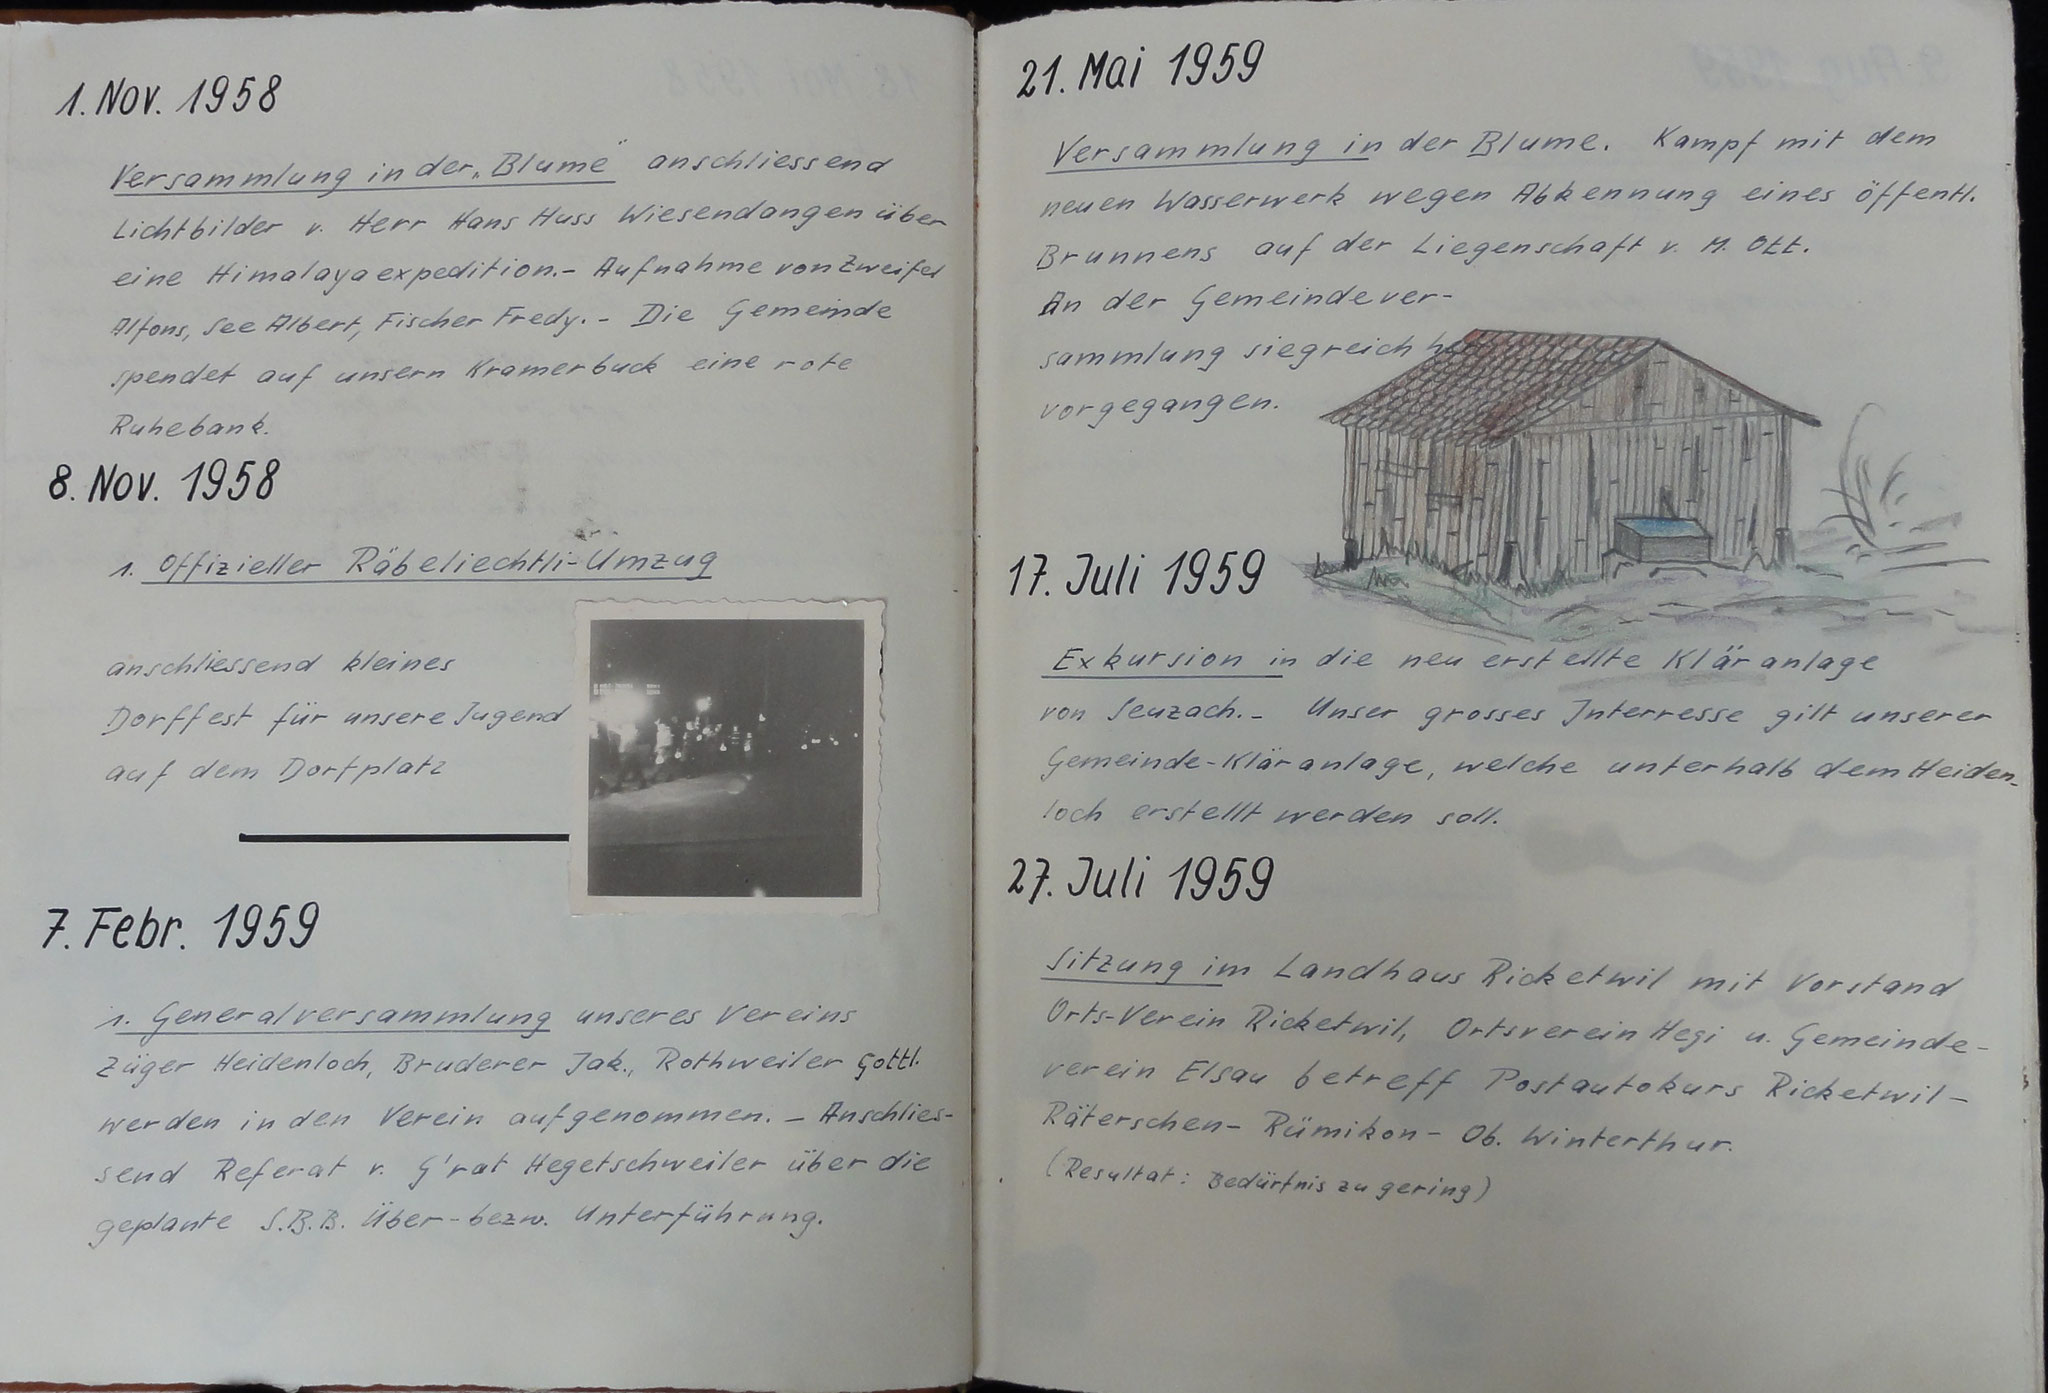 1. Nov. 1958
Versammlung in der „Blume" anschliessend
Lichtbilder v. Herr Hans Huss Wiesendangen über
eine Himalayaexpedition.- Aufnahme von Zweifel
Alfons, See Albert, Fischer Fredy.- Die Gemeinde
spendet auf unsern Kramerbuck eine rote
Ruhebank.
8. Nov. 1958
1. Offizieller Räbeliechtli-Umzug
anschliessend kleines
Dorffest für unsere Jugend
auf dem Dorfplatz
7. Febr. 1959
1. Generalversammlung unseres Vereins
Züger Heidenloch, Bruderer Jak., Rothweiler Gottl.
werden in den Verein aufgenommen. - Anschlies-
send Referat v. G'rat Hegetschweiler über die
geplante S.B.B. Über- bezw. Unterführung.
21. Mai 1959
Versammlung in der Blume. Kampf mit dem
neuen Wasserwerk wegen Abkennung eines öffentl.
Brunnens auf der Liegenschaft v. M. Ott.
An der Gemeindever-
sammlung siegreich her
vorgegangen.
17. Juli 1959
Exkursion in die neu erstellte Kläranlage
von Seuzach.- Unser grosses Interresse gilt unserer
Gemeinde-Kläranlage, welche unterhalb dem Heiden-
loch erstellt werden soll.
27. Juli 1959
Sitzung im Landhaus Ricketwil mit Vorstand
Orts-Verein Ricketwil, Ortsverein Hegi u. Gemeinde-
verein Elsau betreff Postautokurs Ricketwil-
Räterschen- Rümikon- Ob. Winterthur.
(Resultat: Bedürfnis zu gering)